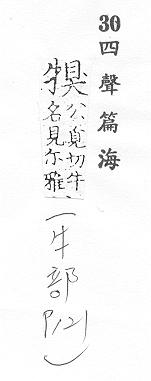 30 四聲篇海
犑 公覓切牛
名見尔雅
(牛部 P121)